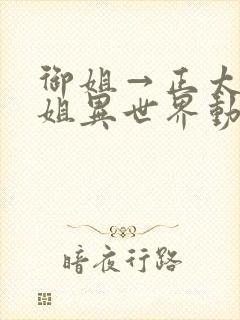 御姐→正太
姐異世界動
暗夜行路